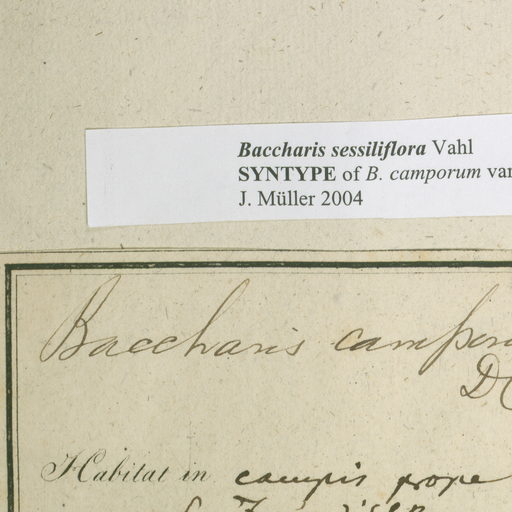 Baccharis sessiliflora Vahl
SYNTYPE of B. camporum var
J. Müller 2004
Baccharis campor
DC
Habitat in campis prope